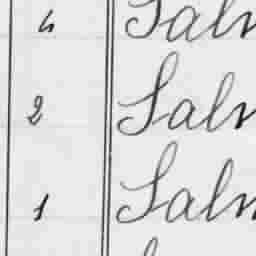 4 Salm
2 Salm
1 Salm